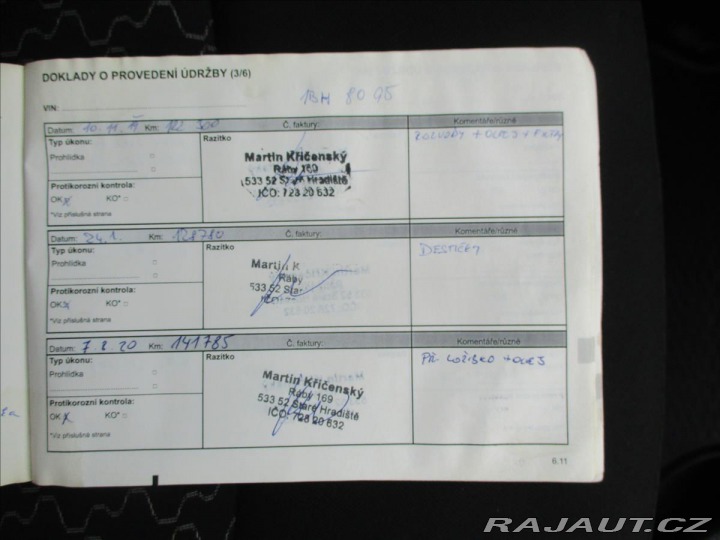 DOKLADY O PROVEDENÍ ÚDRŽBY (3/6)
VIN:
1BH 8095
Datum: 10.11. Km: 122 300 Č. faktury: Komentáře/různé
Typ úkonu: Razítko ROZVODY + OLEJ + FILTRY
Prohlídka
Martin Křičenský
Ráby 169
533 52 Staré Hradiště
IČO: 728 20 632
Protikorozní kontrola:
OK KO*
*Viz příslušná strana
Datum: 24.1. Km: 128780 Č. faktury: Komentáře/různé
Typ úkonu: Razítko DESTIČKY
Prohlídka
Martin K
Ráby
533 52 Star
IČO
Protikorozní kontrola:
OK KO*
*Viz příslušná strana
Datum: 7 2. 20 Km: 141785 Č. faktury: Komentáře/různé
Typ úkonu: Razítko PŘ. LOŽISKO + OLEJ
Prohlídka
Martin Křičenský
Ráby 169
533 52 Staré Hradiště
IČO: 728 20 632
Protikorozní kontrola:
OK KO*
*Viz příslušná strana
6.11
RAJAUT.CZ